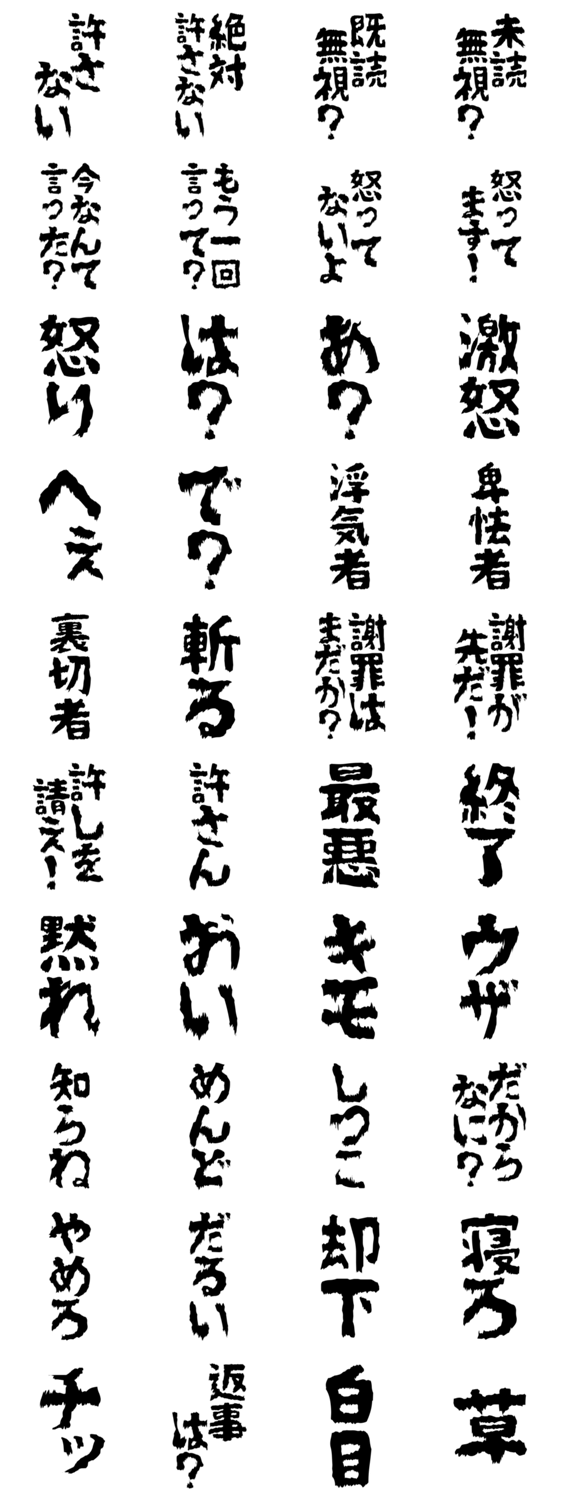 許さ
ない
絶対
許さない
既読
無視?
未読
無視?
今なんて
言った?
もう一回
言って?
怒って
ないよ
怒って
ます!
怒り
は?
あ?
激怒
へえ
で?
浮気者
卑怯者
裏切者
斬る
謝罪は
まだか?
謝罪が
先だ!
許しを
請え!
許さん
最悪
終了
黙れ
おい
キモ
ウザ
知らね
めんど
しつこ
だから
なに?
やめろ
だるい
却下
寝ろ
チッ
返事
は?
白目
草